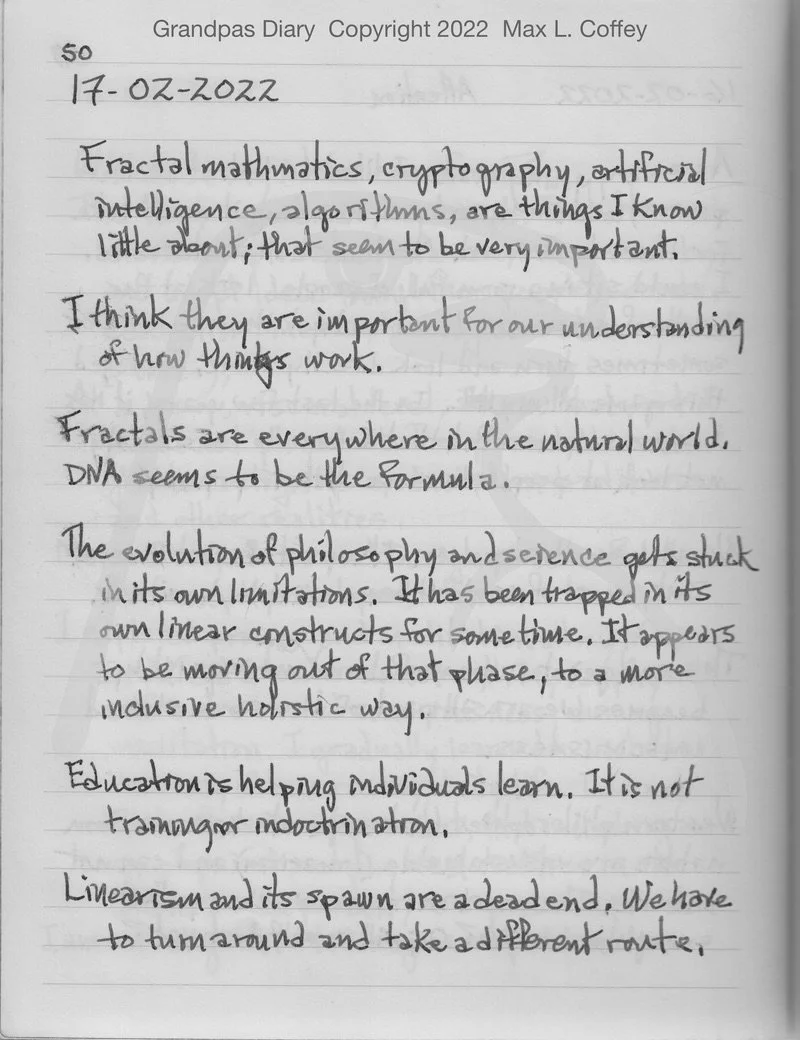 Grandpas Diary Copyright 2022 Max L. Coffey
50
17-02-2022
Fractal mathmatics, cryptography, artificial
intelligence, algorithms, are things I know
little about; that seem to be very important.
I think they are important for our understanding
of how things work.
Fractals are everywhere in the natural world.
DNA seems to be the formula.
The evolution of philosophy and science gets stuck
in its own limitations. It has been trapped in its
own linear constructs for some time. It appears
to be moving out of that phase, to a more
inclusive holistic way.
Education is helping individuals learn. It is not
training or indoctrination.
Linearism and its spawn are a dead end. We have
to turn around and take a different route.